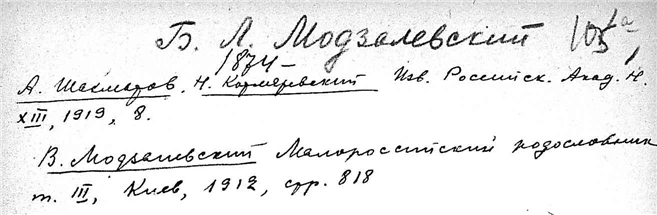 Б. Л. Модзалевский 105а
1874 —
А. Шахматов, Н. Карамзинский Изв. Российск. Акад. Н.
XIII, 1919, 8.
В. Модзалевский Малороссийский родословник
т. III, Киев, 1912, стр. 818